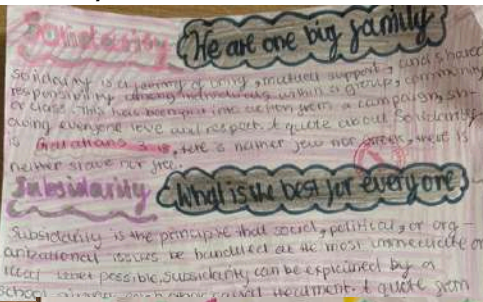 Solidarity We are one big family
Solidarity is a feeling of unity, mutual support, and shared
responsibility among individuals within a group, community
or class. This has been put into action from a campaign, sh-
owing everyone love and respect. A quote about Solidarity
is Galatians 3:28, there is neither jew nor greek, there is
neither slave nor free.
Subsidarity What is the best for everyone
Subsidarity is the principle that social, political, or org-
anizational issues be handled at the most immediate or
local level possible. Subsidarity can be explained by a
school giving treatment. A quote from